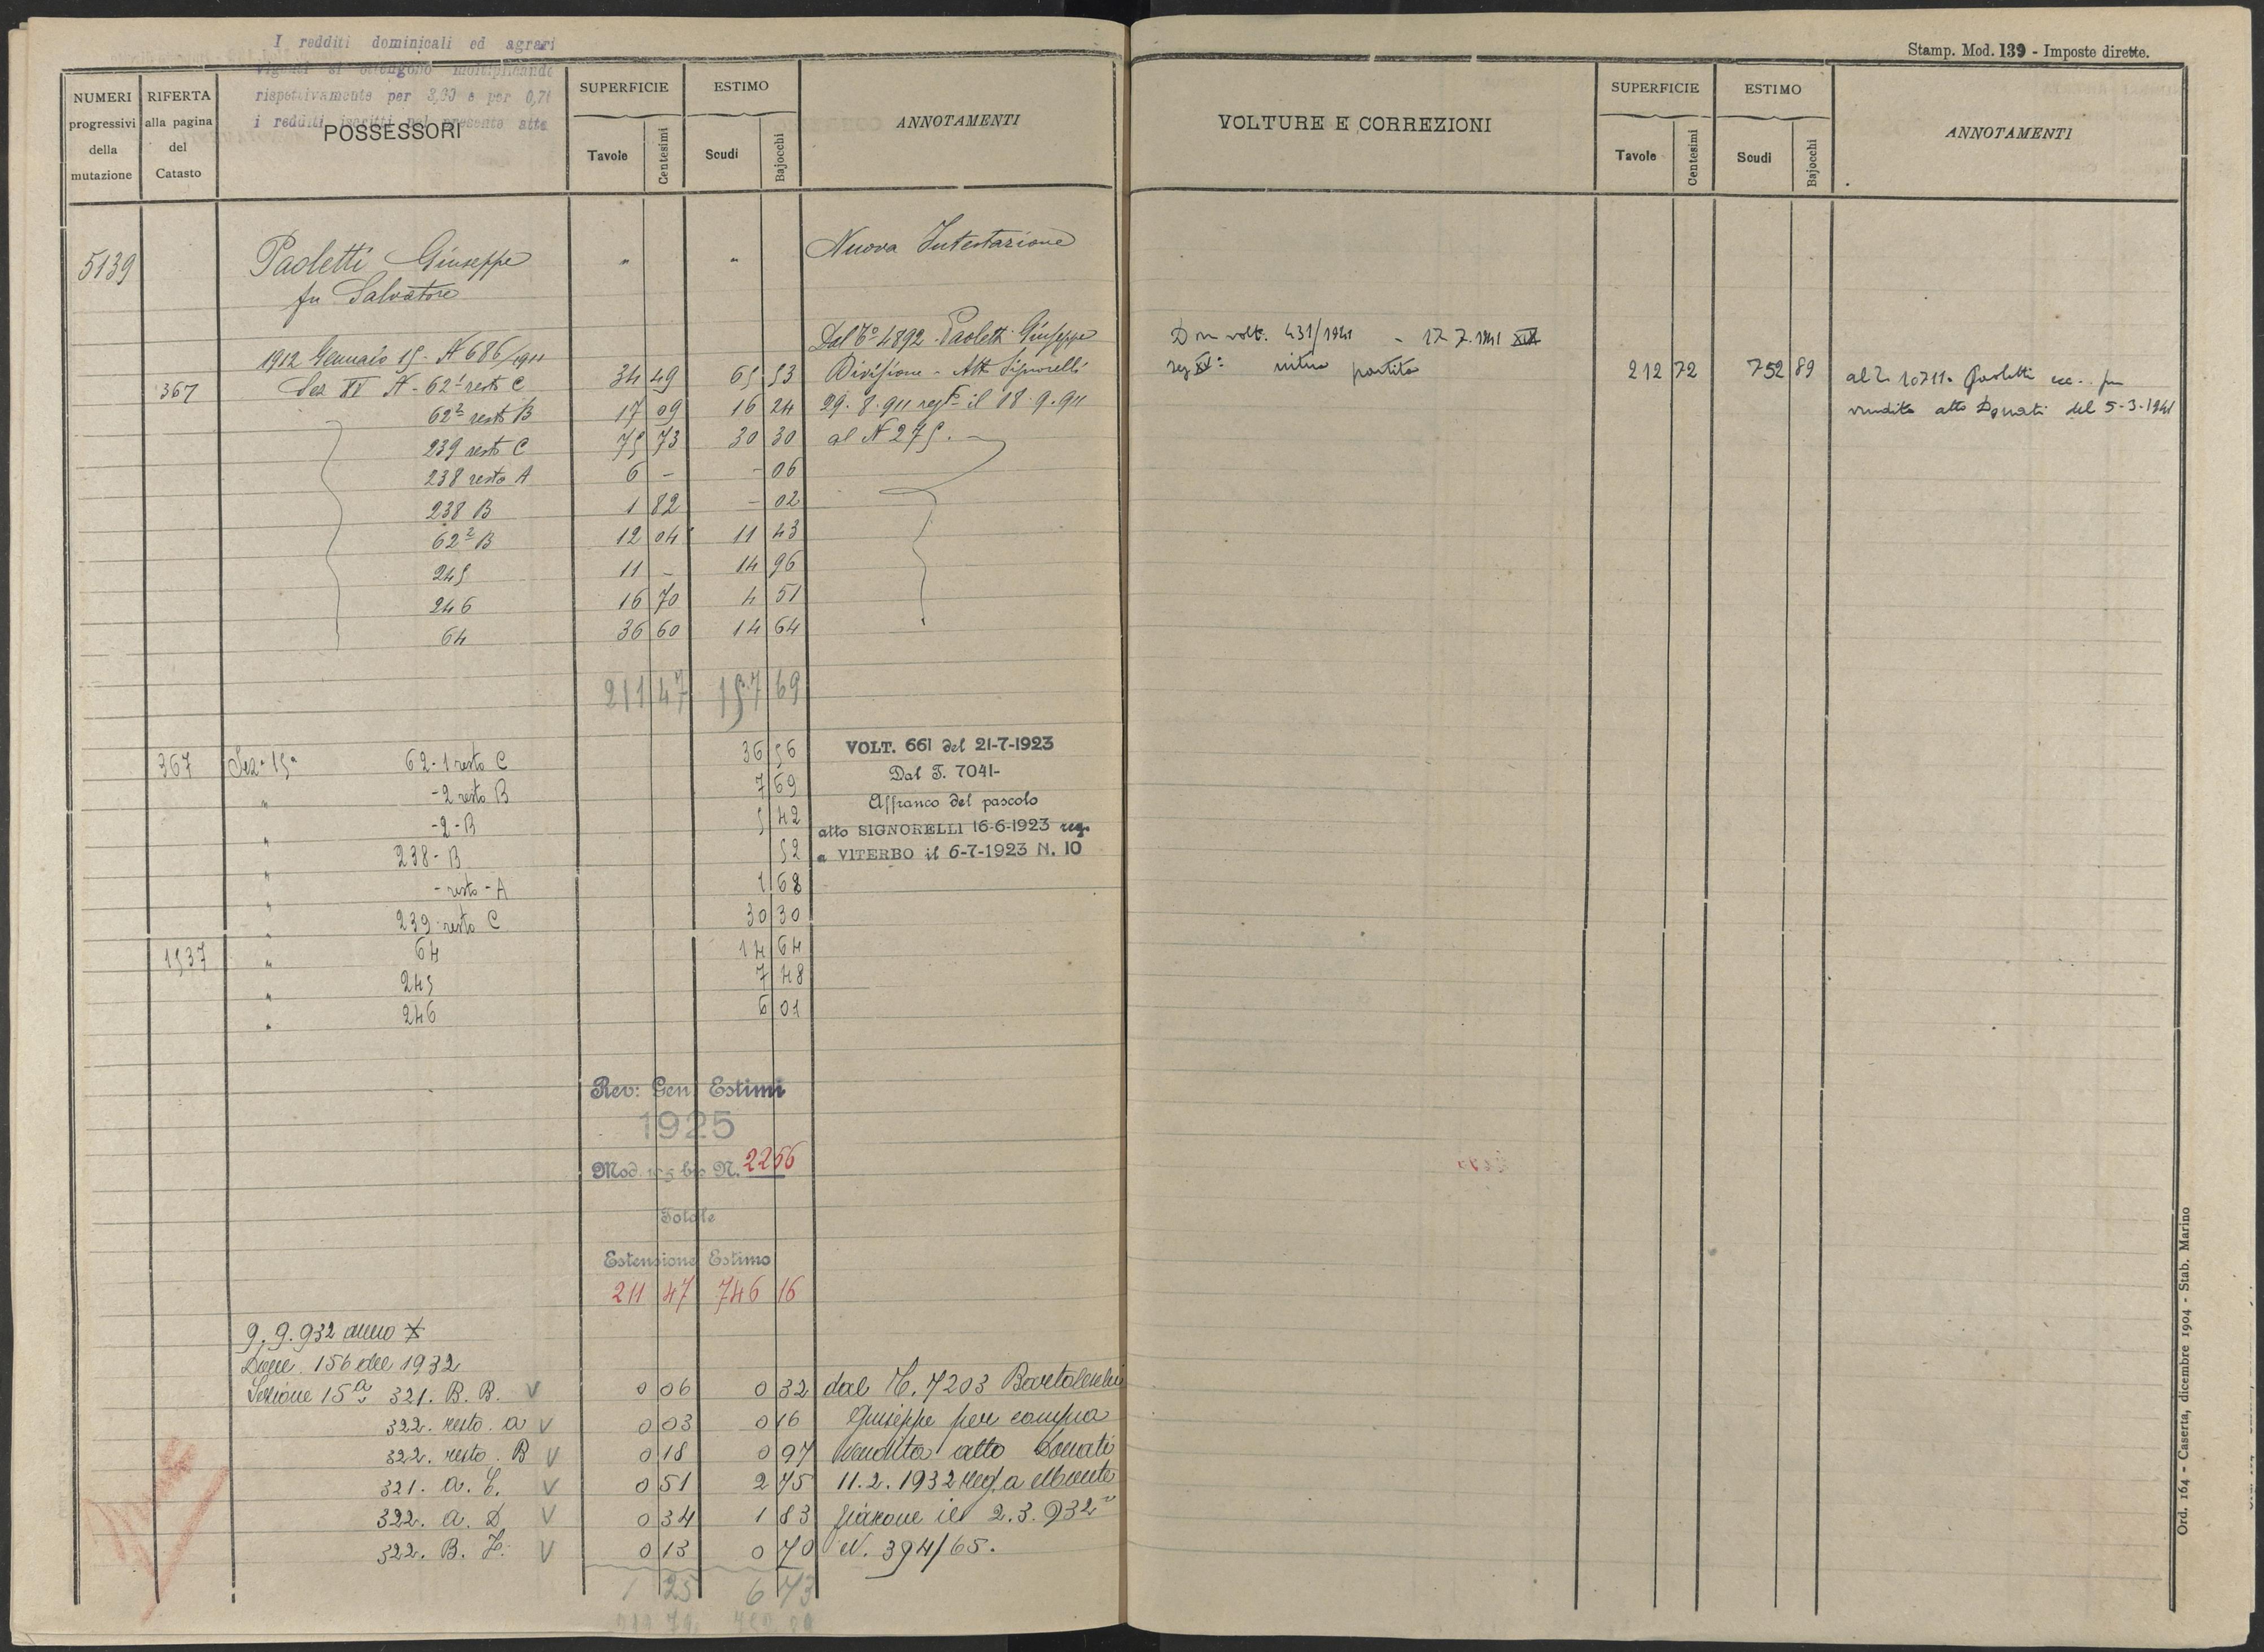 I redditi dominicali ed agrari
vigenti si ottengono moltiplicando
rispettivamente per 3,33 e per 0,71
i redditi iscritti nel presente atto
NUMERI progressivi della mutazione
RIFERTA alla pagina del Catasto
POSSESSORI
SUPERFICIE
Tavole Centesimi
ESTIMO
Scudi Bajocchi
ANNOTAMENTI
5139 Paoletti Giuseppe " " Nuova Intestazione
fu Salvatore
1912 Gennaio 15 - N 686/1911 Dal To 4892 - Paoletti Giuseppe
367 Sez XV N - 62¹ resto C 34 49 65 53 Divisione - Atto Signorelli
62² resto B 17 09 16 24 29.8.911 regto il 18.9.911
239 resto C 75 73 30 30 al N 275.
238 resto A 6 - - 06
238 B 1 82 - 02
62² B 12 04 11 43
245 11 - 14 96
246 16 70 4 51
64 36 60 14 64
211 47 157 69
367 Sez. 15a 62-1 resto C 36 56 VOLT. 661 del 21-7-1923
" -2 resto B 7 69 Dal T. 7041-
" -2-B 5 42 Affranco del pascolo
" 238-B 52 atto SIGNORELLI 16-6-1923 reg.
" -resto-A 1 68 a VITERBO il 6-7-1923 N. 10
" 239 resto C 30 30
1537 " 64 14 64
" 245 7 48
" 246 6 01
Rev: Gen Estimi
1925
Mod. 105 bis N. 2256
Totale
Estensione Estimo
211 47 746 16
9.9.932 anno X
Dom. 156 del 1932
Sezione 15a 321. B. B. V 0 06 0 32 dal T. 7203
322. resto. a V 0 03 0 16 Giuseppe per compra
322. resto. B V 0 18 0 97 vendita atto Donati
321. a. C. V 0 51 2 75 11.2.1932 reg. a Monte
322. a. D V 0 34 1 83 fiascone il 2.3.932
322. B. F. V 0 13 0 70 N. 394/65.
1 25 6 73
Stamp. Mod. 139 - Imposte dirette.
VOLTURE E CORREZIONI
SUPERFICIE
Tavole Centesimi
ESTIMO
Scudi Bajocchi
ANNOTAMENTI
Dom volt. 431/1941 - 17.7.1941 XIX
sez XV: intera partita 212 72 752 89 al T. 10711. Paoletti ecc. per
vendita atto Donati del 5-3-1941
Ord. 164 - Caserta, dicembre 1904 - Stab. Marino